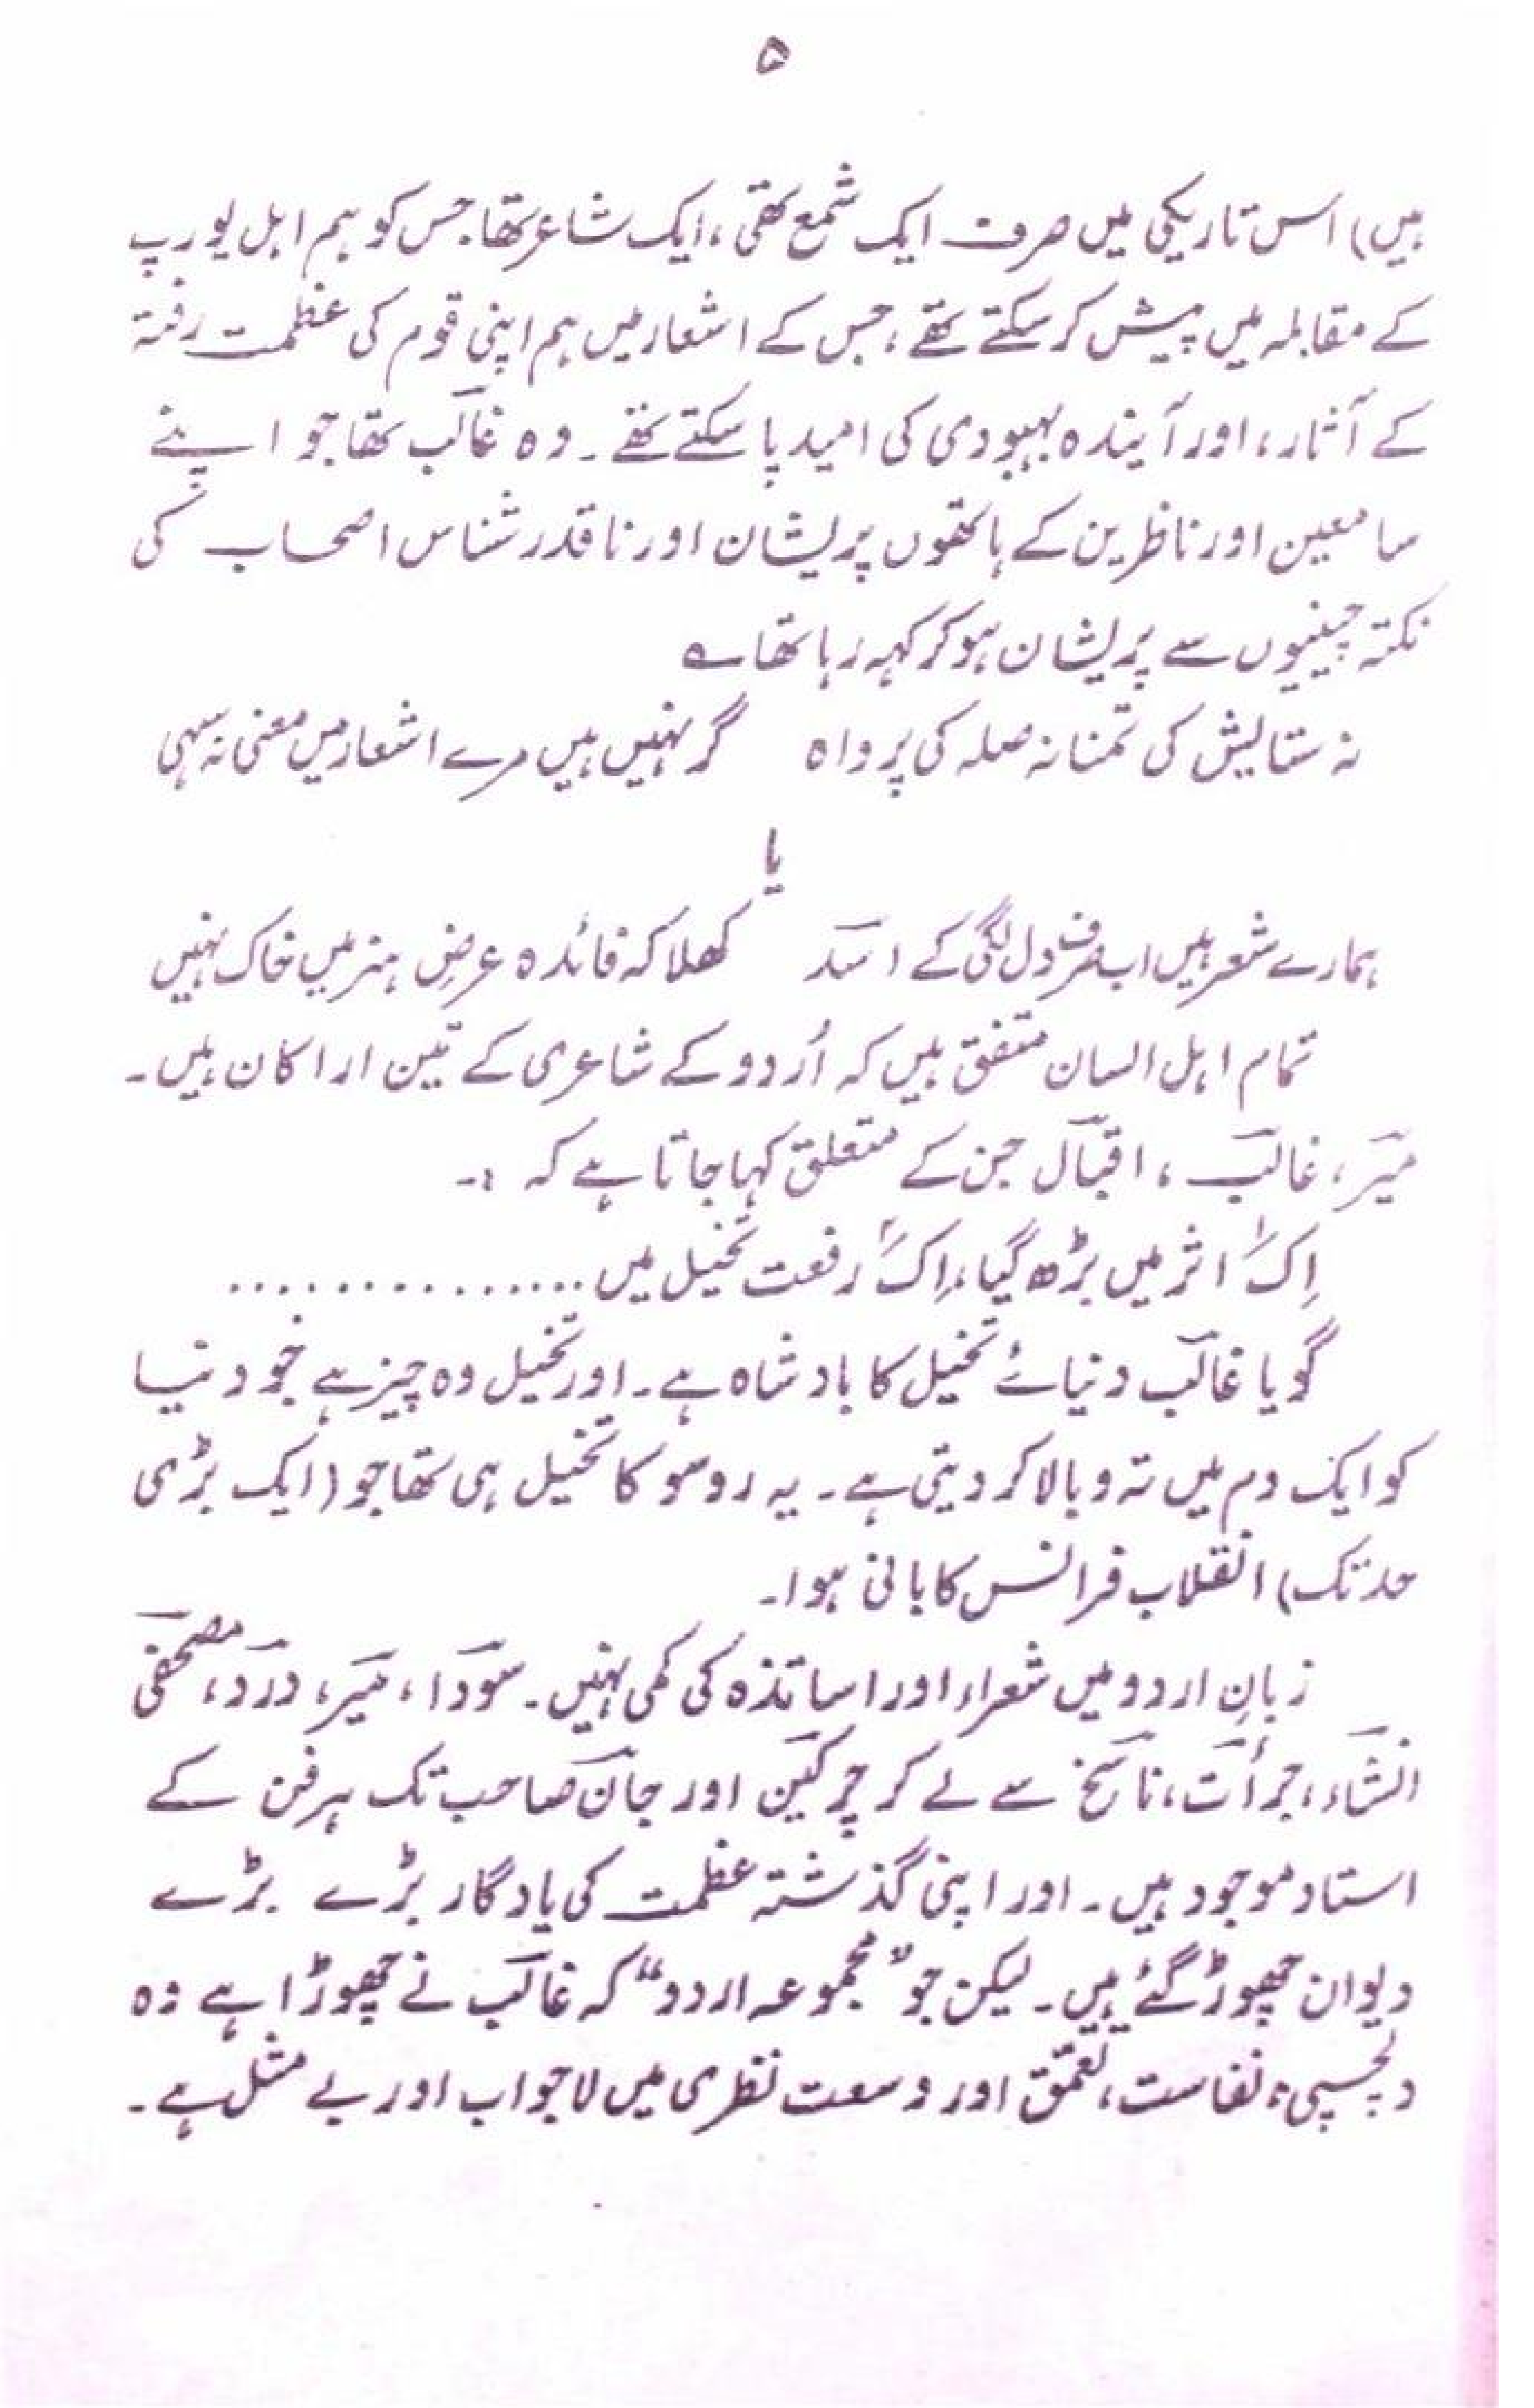 ۵
ہیں) اس تاریکی میں صرف ایک شمع تھی، ایک شاعر تھا جس کو ہم اہل یورپ
کے مقابلہ میں پیش کر سکتے تھے، جس کے اشعار میں ہم اپنی قوم کی عظمت رفتہ
کے آثار، اور آیندہ بہبودی کی امید پا سکتے تھے۔ وہ غالب تھا جو اپنے
سامعین اور ناظرین کے ہاتھوں پریشان اور ناقدر شناس اصحاب کی
نکتہ چینیوں سے پریشان ہو کر کہہ رہا تھا ؎
نہ ستایش کی تمنا نہ صلہ کی پرواہ گر نہیں ہیں مرے اشعار میں معنی نہ سہی
یا
ہمارے شعر ہیں اب صرف دل لگی کے اسد کھلا کہ فائدہ عرضِ ہنر میں خاک نہیں
تمام اہل السان متفق ہیں کہ اُردو کے شاعری کے تین اراکان ہیں۔
میر، غالب، اقبال جن کے متعلق کہا جاتا ہے کہ :۔
اِک اثر میں بڑھ گیا، اِک رفعت تخیل میں...............
گویا غالب دنیائے تخیل کا بادشاہ ہے۔ اور تخیل وہ چیز ہے جو دنیا
کو ایک دم میں تہ و بالا کر دیتی ہے۔ یہ روسو کا تخیل ہی تھا جو (ایک بڑی
حد تک) انقلاب فرانس کا بانی ہوا۔
زبانِ اردو میں شعراء اور اساتذہ کی کمی نہیں۔ سودا، میر، درد، مصحفی
انشاء، جرأت، ناسخ سے لے کر چرکین اور جان صاحب تک ہر فن کے
استاد موجود ہیں۔ اور اپنی گذشتہ عظمت کی یادگار بڑے بڑے
دیوان چھوڑ گئے ہیں۔ لیکن جو "مجموعہ اردو" کہ غالب نے چھوڑا ہے وہ
دلچسپی، نفاست، تعمّق اور وسعت نظری میں لاجواب اور بے مثل ہے۔